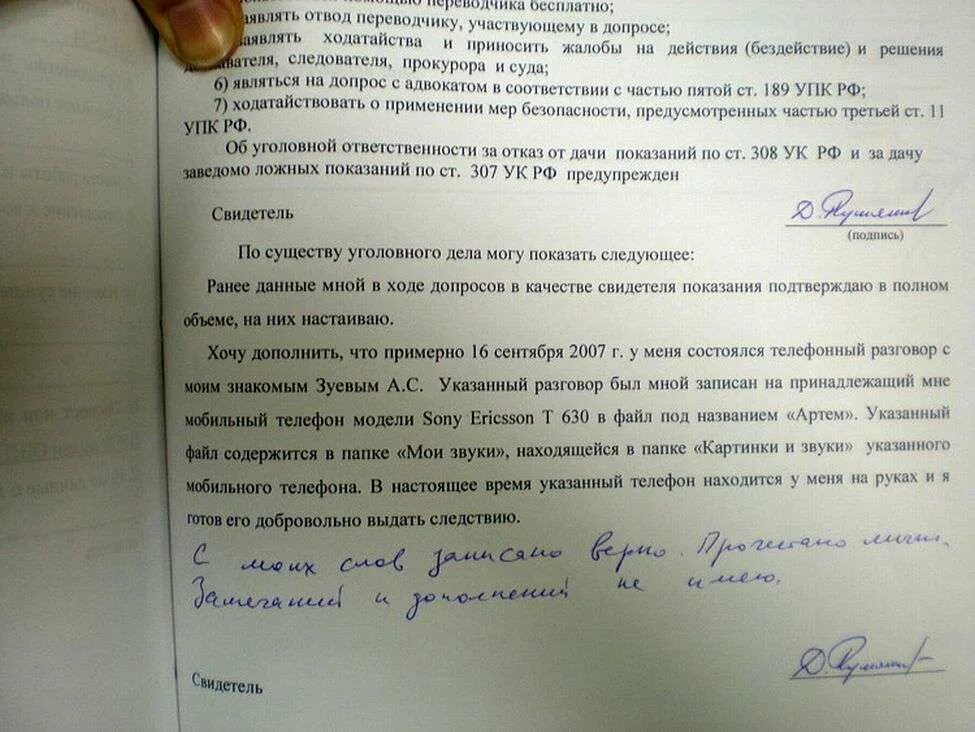 переводчика бесплатно;
заявлять отвод переводчику, участвующему в допросе;
заявлять ходатайства и приносить жалобы на действия (бездействие) и решения
дознавателя, следователя, прокурора и суда;
6) являться на допрос с адвокатом в соответствии с частью пятой ст. 189 УПК РФ;
7) ходатайствовать о применении мер безопасности, предусмотренных частью третьей ст. 11
УПК РФ.
Об уголовной ответственности за отказ от дачи показаний по ст. 308 УК РФ и за дачу
заведомо ложных показаний по ст. 307 УК РФ предупрежден
Свидетель
(подпись)
По существу уголовного дела могу показать следующее:
Ранее данные мной в ходе допросов в качестве свидетеля показания подтверждаю в полном
объеме, на них настаиваю.
Хочу дополнить, что примерно 16 сентября 2007 г. у меня состоялся телефонный разговор с
моим знакомым Зуевым А.С. Указанный разговор был мной записан на принадлежащий мне
мобильный телефон модели Sony Ericsson T 630 в файл под названием «Артем». Указанный
файл содержится в папке «Мои звуки», находящейся в папке «Картинки и звуки» указанного
мобильного телефона. В настоящее время указанный телефон находится у меня на руках и я
готов его добровольно выдать следствию.
С моих слов записано верно. Прочитано лично.
Замечаний и дополнений не имею.
Свидетель